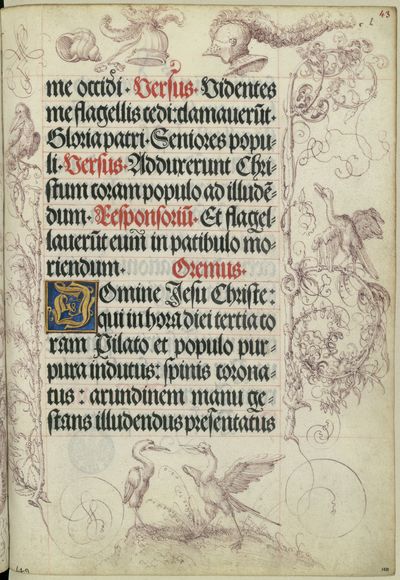 43
me occidi · Versus · Videntes
me flagellis cedi: clamauerūt.
Gloria patri · Seniores popu-
li · Versus · Adduxerunt Chri-
stum coram populo ad illudē-
dum · Responsoriū · Et flagel-
lauerūt eum in patibulo mo-
riendum · Oremus ·
Domine Jesu Christe:
qui in hora diei tertia co
ram Pilato et populo pur-
pura indutus: spinis corona-
tus: arundinem manu ge-
stans illudendus presentatus